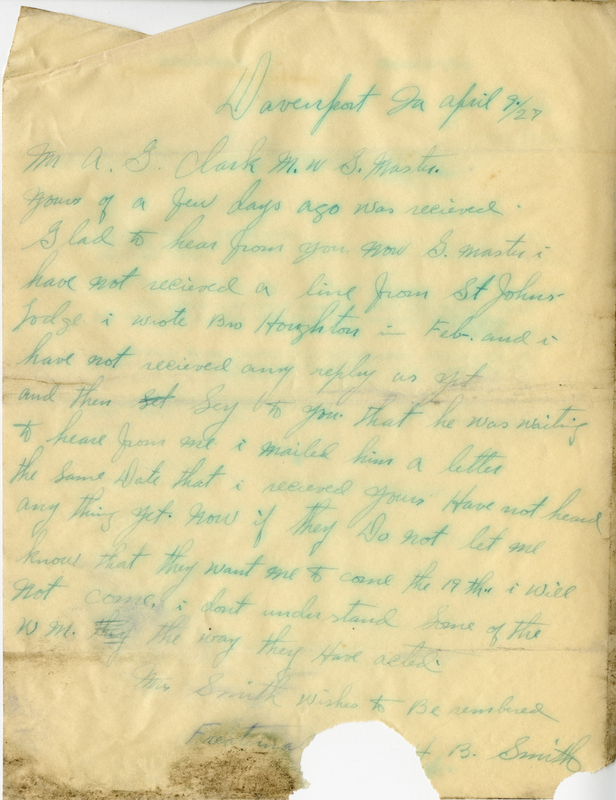 Davenport Ia april 9/27
Mr A. G. Clark M. W G. Master.
yours of a few days ago was recieved.
Glad to hear from you. now G. master i
have not recieved a line from St Johns
Lodge. i wrote Bro Houghton in Feb. and i
have not recieved any reply as yet
and then Sey to you. that he was waiting
to heare from me i mailed him a letter
the same Date that i recieved yours Have not heard
any thing yet. now if they Do not let me
know that they want me to come the 19 th. i will
not come. i dont understand Some of the
W M. the way they Have acted.
Mrs Smith wishes to Be rembred
B. Smith